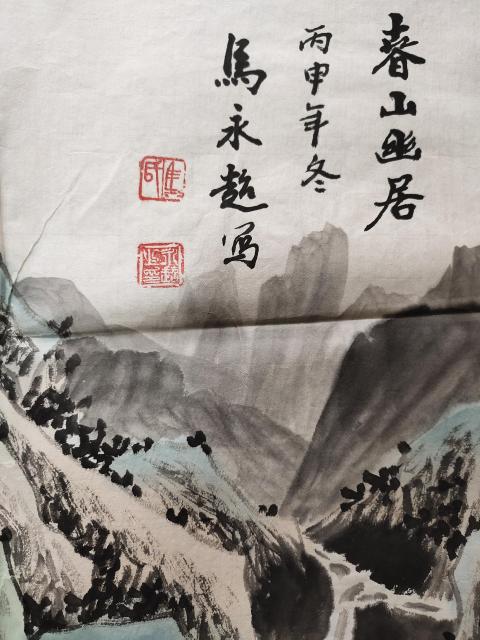 春山幽居
丙申年冬
馬永超写